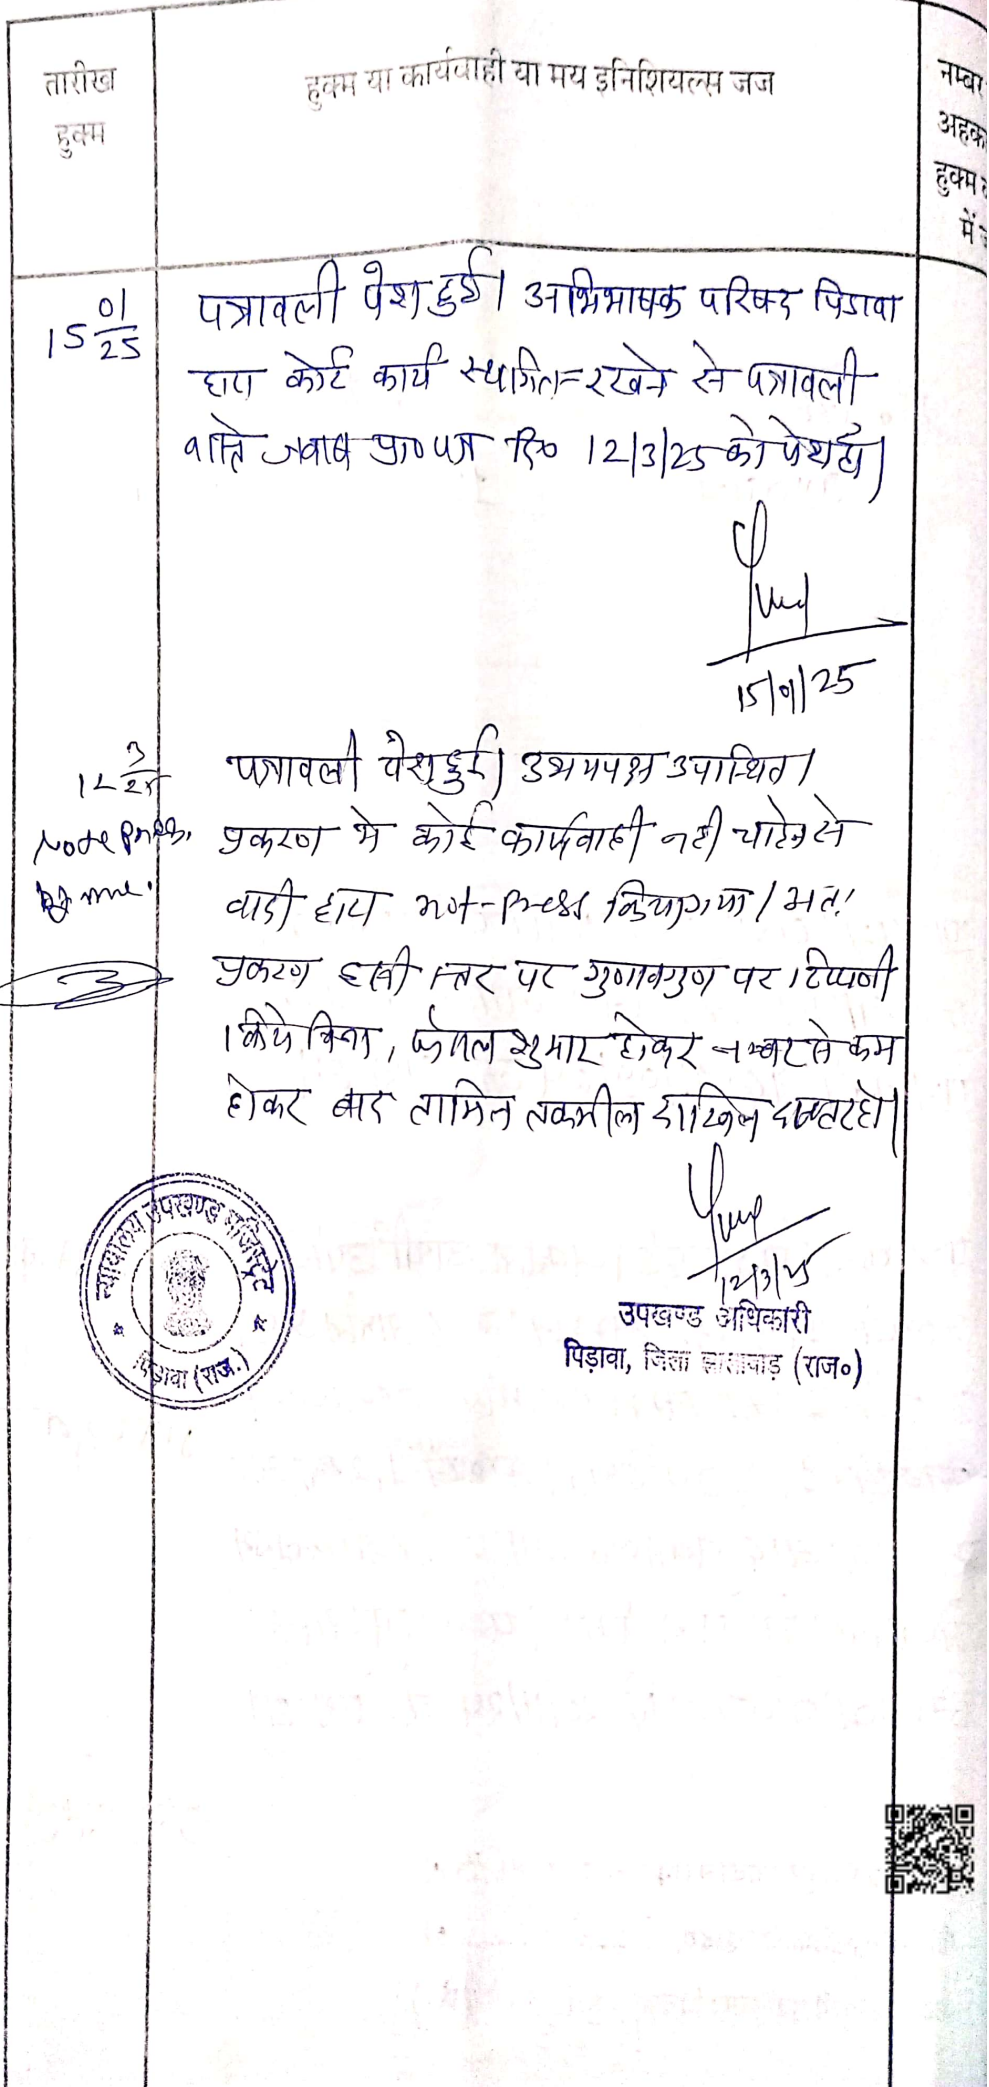 तारीख
हुक्म
हुक्म या कार्यवाही या मय इनिशियल्स जज
नम्बर
अहक
हुक्म
में
15 01/25
पत्रावली पेश हुई। अभिभाषक परिषद पिडावा
द्वारा कोर्ट कार्य स्थगित रखने से पत्रावली
वास्ते जवाब प्रा० पत्र दि० 12/3/25 को पेश हो।
15/01/25
12 3/25
पत्रावली पेश हुई। उभयपक्ष उपस्थित।
Note Press
by me.
प्रकरण मे कोई कार्यवाही नही चाहने से
वादी द्वारा not-press किया गया। अतः
प्रकरण इसी स्तर पर गुणावगुण पर टिप्पणी
किये बिना, फैसल शुमार होकर नम्बर से कम
होकर बाद तामिल तकमील दाखिल दफ्तर हो।
12/3/25
न्यायालय उपखण्ड मजिस्ट्रेट
पिड़ावा (राज.)
उपखण्ड अधिकारी
पिड़ावा, जिला झालावाड़ (राज०)